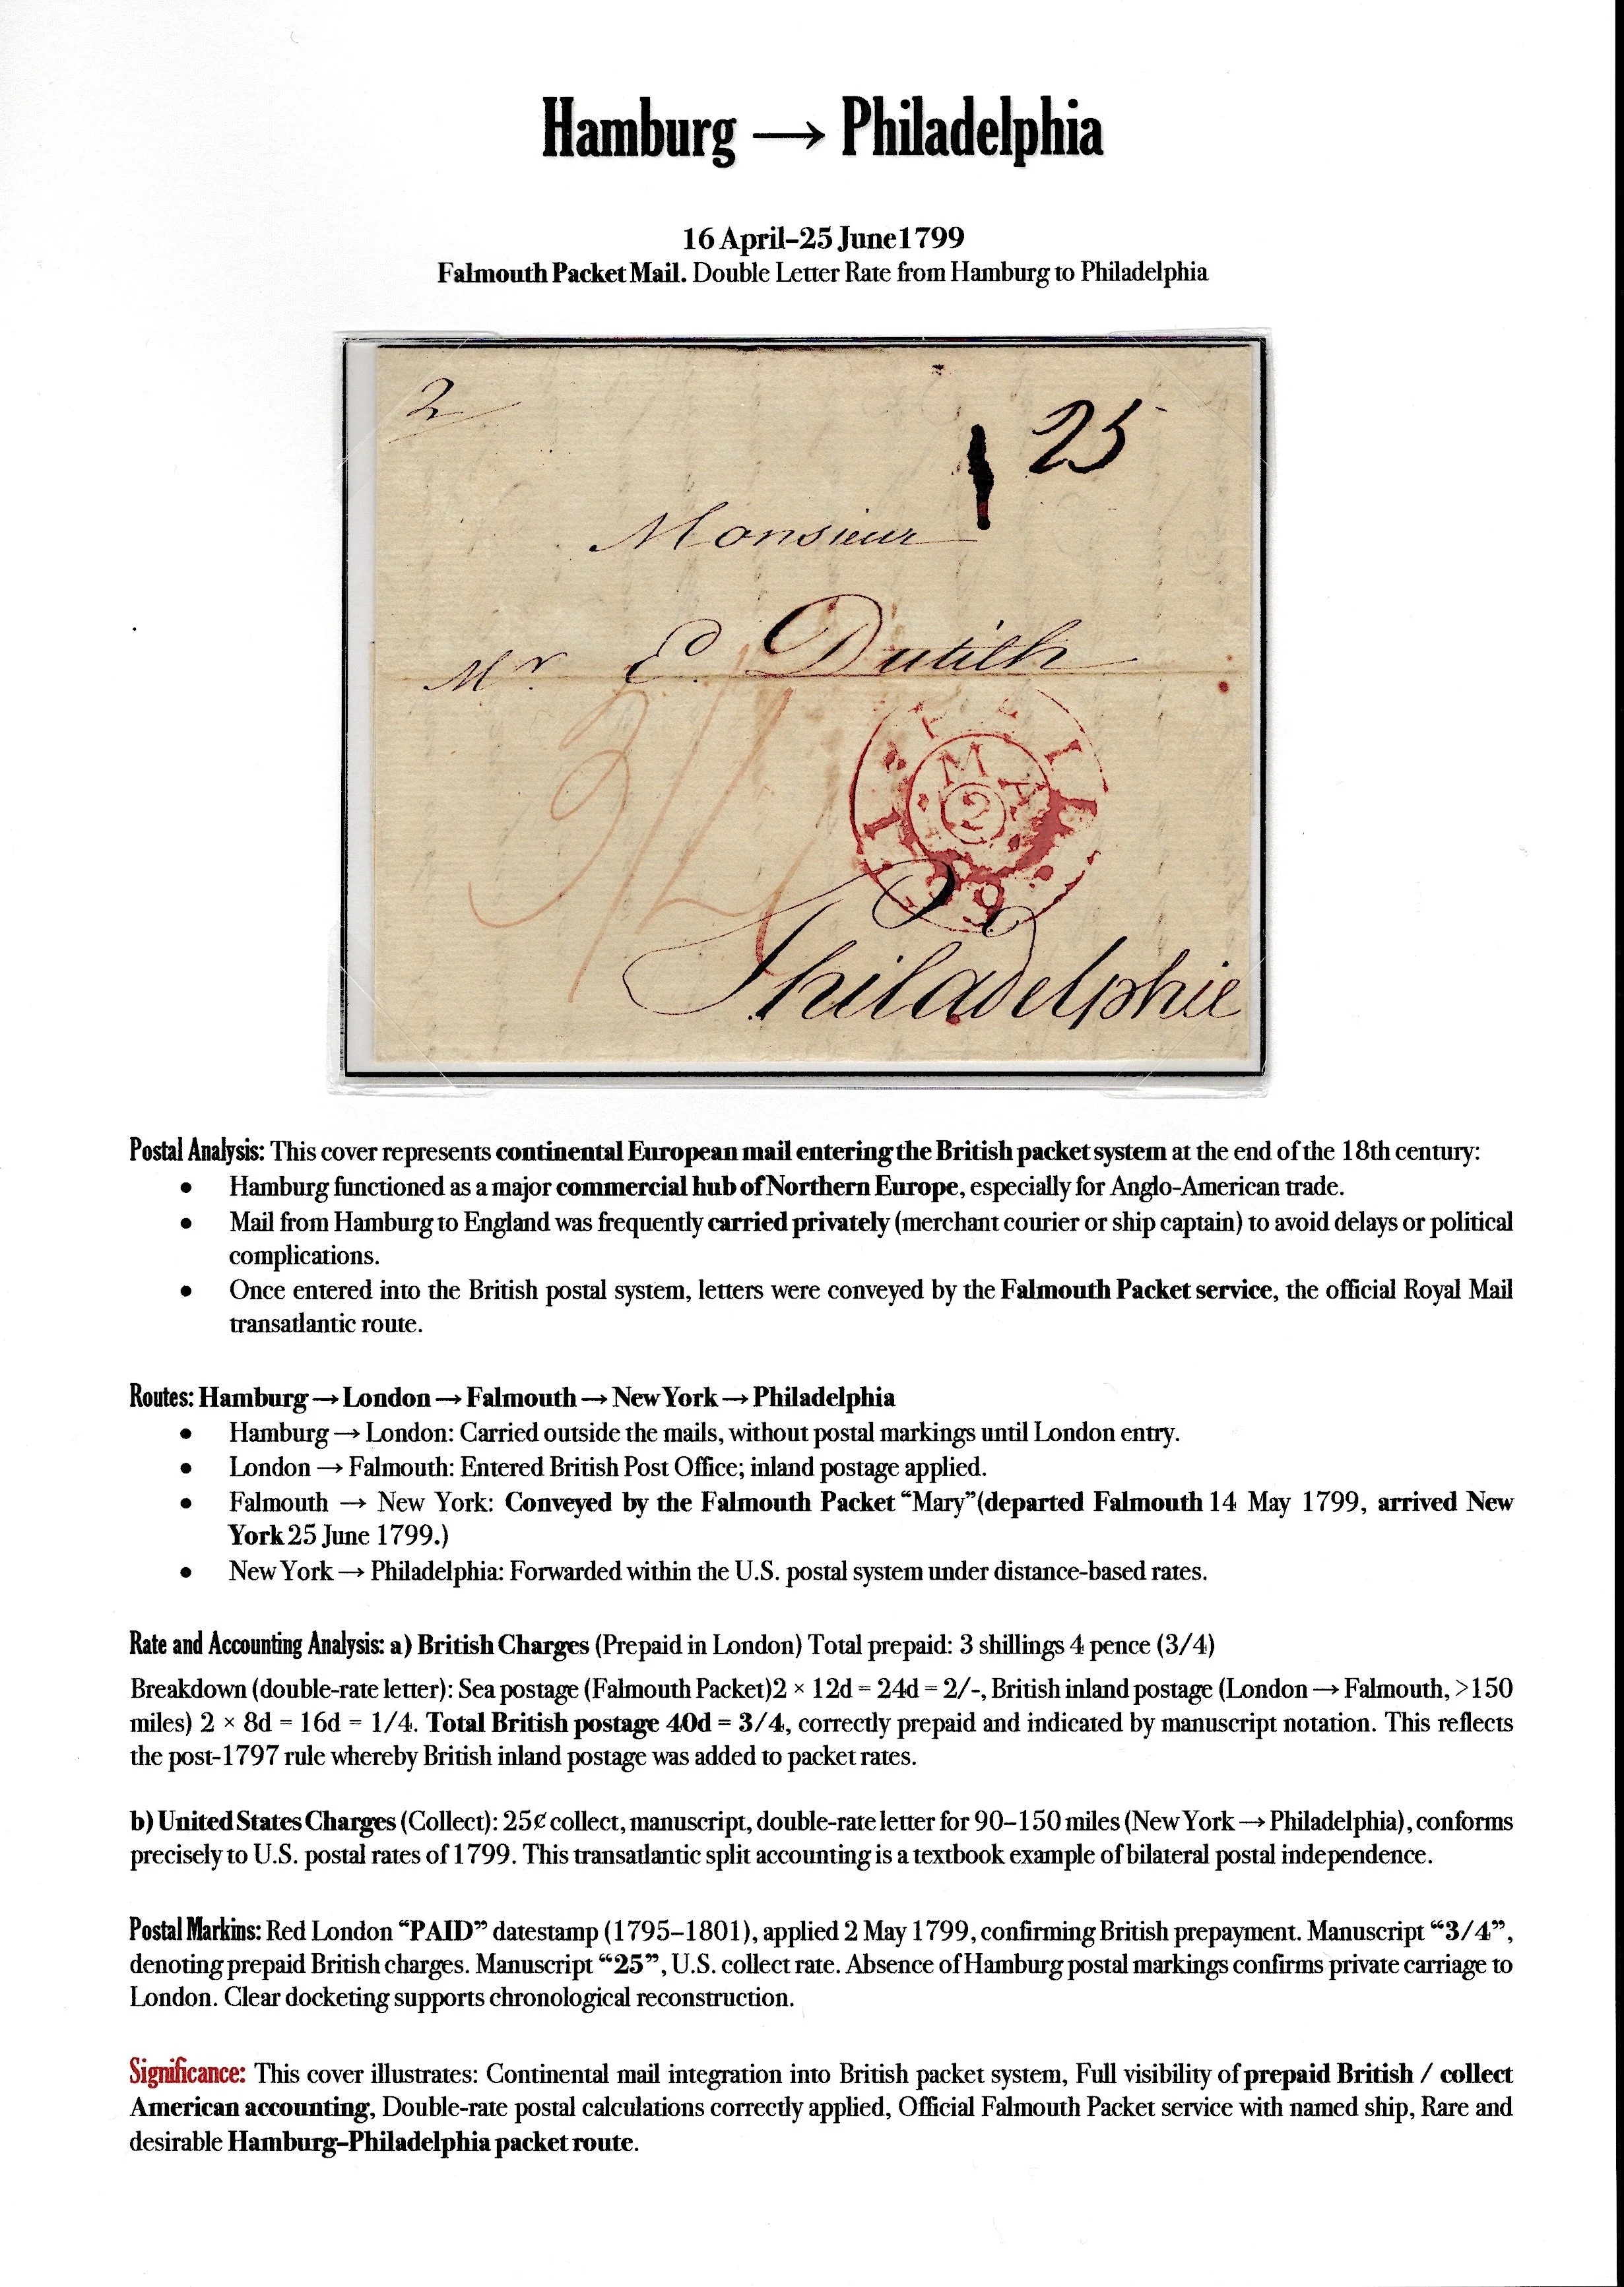 Hamburg → Philadelphia
16 April–25 June1799
Falmouth Packet Mail. Double Letter Rate from Hamburg to Philadelphia
2
25
Monsieur
Mr. E. Dutilh
3/4
MA
2
99
Philadelphie
Postal Analysis: This cover represents continental European mail entering the British packet system at the end of the 18th century:
• Hamburg functioned as a major commercial hub of Northern Europe, especially for Anglo-American trade.
• Mail from Hamburg to England was frequently carried privately (merchant courier or ship captain) to avoid delays or political
complications.
• Once entered into the British postal system, letters were conveyed by the Falmouth Packet service, the official Royal Mail
transatlantic route.
Routes: Hamburg → London → Falmouth → New York → Philadelphia
• Hamburg → London: Carried outside the mails, without postal markings until London entry.
• London → Falmouth: Entered British Post Office; inland postage applied.
• Falmouth → New York: Conveyed by the Falmouth Packet “Mary”(departed Falmouth 14 May 1799, arrived New
York 25 June 1799.)
• New York → Philadelphia: Forwarded within the U.S. postal system under distance-based rates.
Rate and Accounting Analysis: a) British Charges (Prepaid in London) Total prepaid: 3 shillings 4 pence (3/4)
Breakdown (double-rate letter): Sea postage (Falmouth Packet)2 × 12d = 24d = 2/-, British inland postage (London → Falmouth, >150
miles) 2 × 8d = 16d = 1/4. Total British postage 40d = 3/4, correctly prepaid and indicated by manuscript notation. This reflects
the post-1797 rule whereby British inland postage was added to packet rates.
b) United States Charges (Collect): 25¢ collect, manuscript, double-rate letter for 90–150 miles (New York → Philadelphia), conforms
precisely to U.S. postal rates of 1799. This transatlantic split accounting is a textbook example of bilateral postal independence.
Postal Markins: Red London “PAID” datestamp (1795–1801), applied 2 May 1799, confirming British prepayment. Manuscript “3/4”,
denoting prepaid British charges. Manuscript “25”, U.S. collect rate. Absence of Hamburg postal markings confirms private carriage to
London. Clear docketing supports chronological reconstruction.
Significance: This cover illustrates: Continental mail integration into British packet system, Full visibility of prepaid British / collect
American accounting, Double-rate postal calculations correctly applied, Official Falmouth Packet service with named ship, Rare and
desirable Hamburg–Philadelphia packet route.